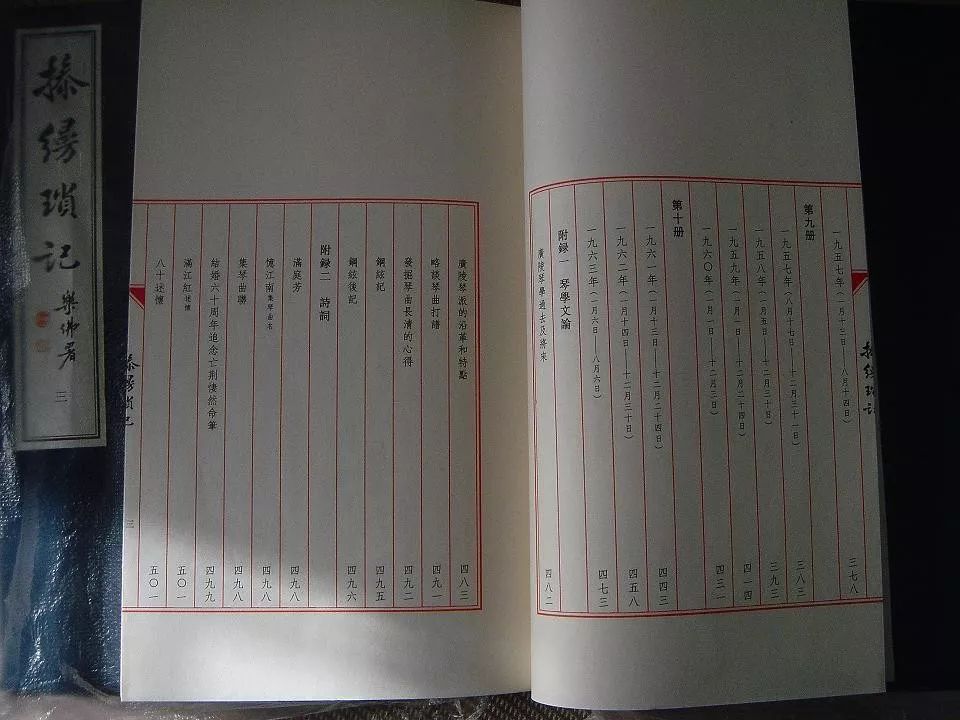 一九五七年(一月十三日——八月十四日) 三七八
第九册
一九五七年(八月十七日——十二月三十一日) 三八三
一九五八年(一月五日——十二月三十日) 三九三
一九五九年(一月一日——十二月二十四日) 四一四
一九六〇年(一月一日——十二月三日) 四三一
第十册
一九六一年(一月十三日——十二月二十四日) 四四三
一九六二年(一月十四日——十二月三十日) 四五八
一九六三年(一月六日——八月六日) 四七三
附録一 琴學文論
廣陵琴學過去及將來 四八二
操縵瑣記
廣陵琴派的沿革和特點 四八三
略談琴曲打譜 四九一
發掘琴曲長清的心得 四九二
鋼絃紀 四九五
鋼絃後記 四九六
附録二 詩詞
滿庭芳 四九八
憶江南集琴曲名 四九八
集琴曲聯 四九八
結婚六十周年追念亡荆悽然命筆 四九九
滿江紅述懷 五〇一
八十述懷 五〇一
操縵瑣記
三
操縵瑣記
署
三